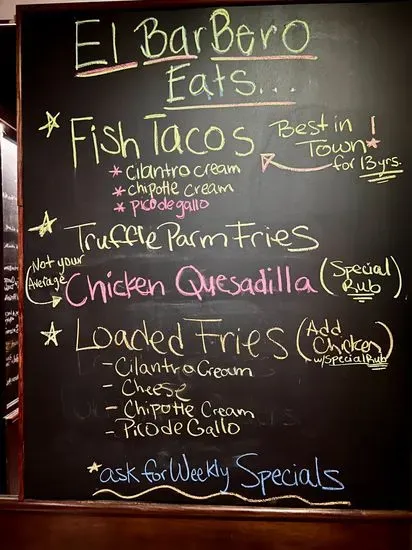 El BarBero
Eats...
Fish Tacos
Best in
Town
for 13 yrs.
* Cilantro cream
* chipotle cream
* pico de gallo
Truffle Parm Fries
Not your
Average
Chicken Quesadilla
(Special
Rub)
Loaded Fries
(Add
Chicken
w/Special Rub)
- Cilantro Cream
- Cheese
- Chipotle Cream
- Pico de Gallo
* ask for Weekly Specials